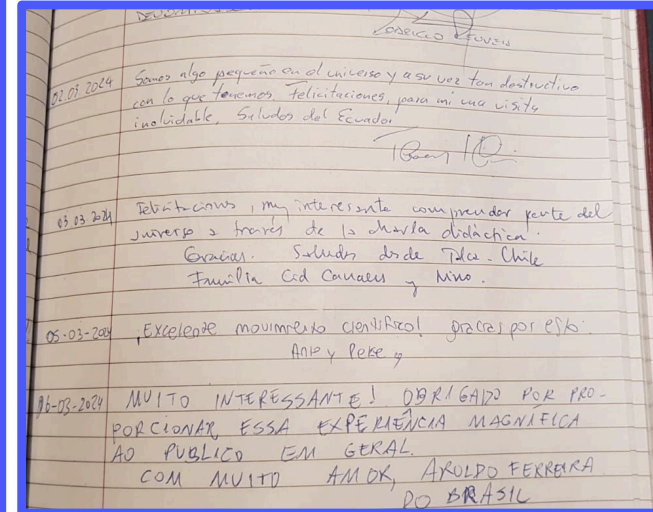 02.03.2024 Somos algo pequeño en el universo y a su vez tan destructivo
con lo que tenemos. Felicitaciones, para mi una visita
inolvidable, Saludos del Ecuador
03.03.2024 Felicitaciones, muy interesante comprender parte del
universo a través de la charla didáctica.
Gracias. Saludos desde Talca - Chile
Familia Cid Canales y Nino.
05-03-2024 ¡Excelente movimiento científico! gracias por esto.
Anie y Peke
06-03-2024 MUITO INTERESSANTE! OBRIGADO POR PRO-
PORCIONAR ESSA EXPERIÊNCIA MAGNÍFICA
AO PUBLICO EM GERAL.
COM MUITO AMOR, AROLDO FERREIRA
DO BRASIL